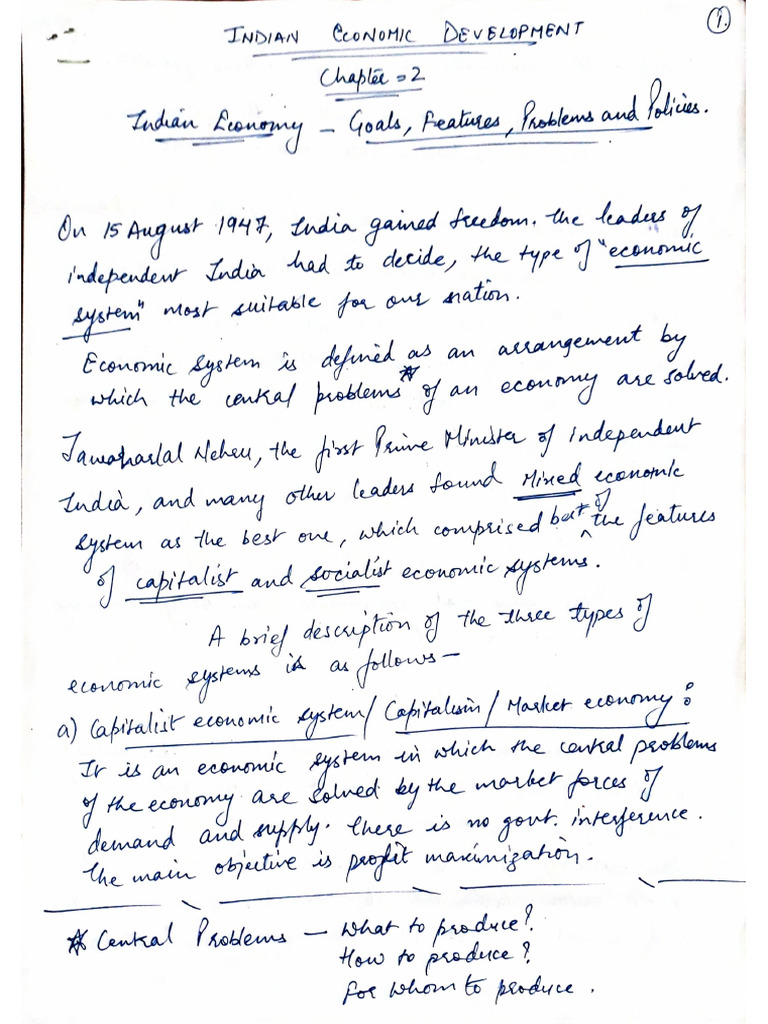 1.
INDIAN ECONOMIC DEVELOPMENT
Chapter = 2
Indian Economy - Goals, Features, Problems and Policies.
On 15 August 1947, India gained freedom. The leaders of
independent India had to decide, the type of "economic
system" most suitable for our nation.
Economic System is defined as an arrangement by
which the central problems* of an economy are solved.
Jawaharlal Nehru, the first Prime Minister of independent
India, and many other leaders found Mixed economic
system as the best one, which comprised best of the features
of capitalist and socialist economic systems.
A brief description of the three types of
economic systems is as follows-
a) Capitalist economic system/ Capitalism/ Market economy:
It is an economic system in which the central problems
of the economy are solved by the market forces of
demand and supply. There is no govt. interference.
The main objective is profit maximization.
* Central Problems - What to produce?
How to produce?
For whom to produce.